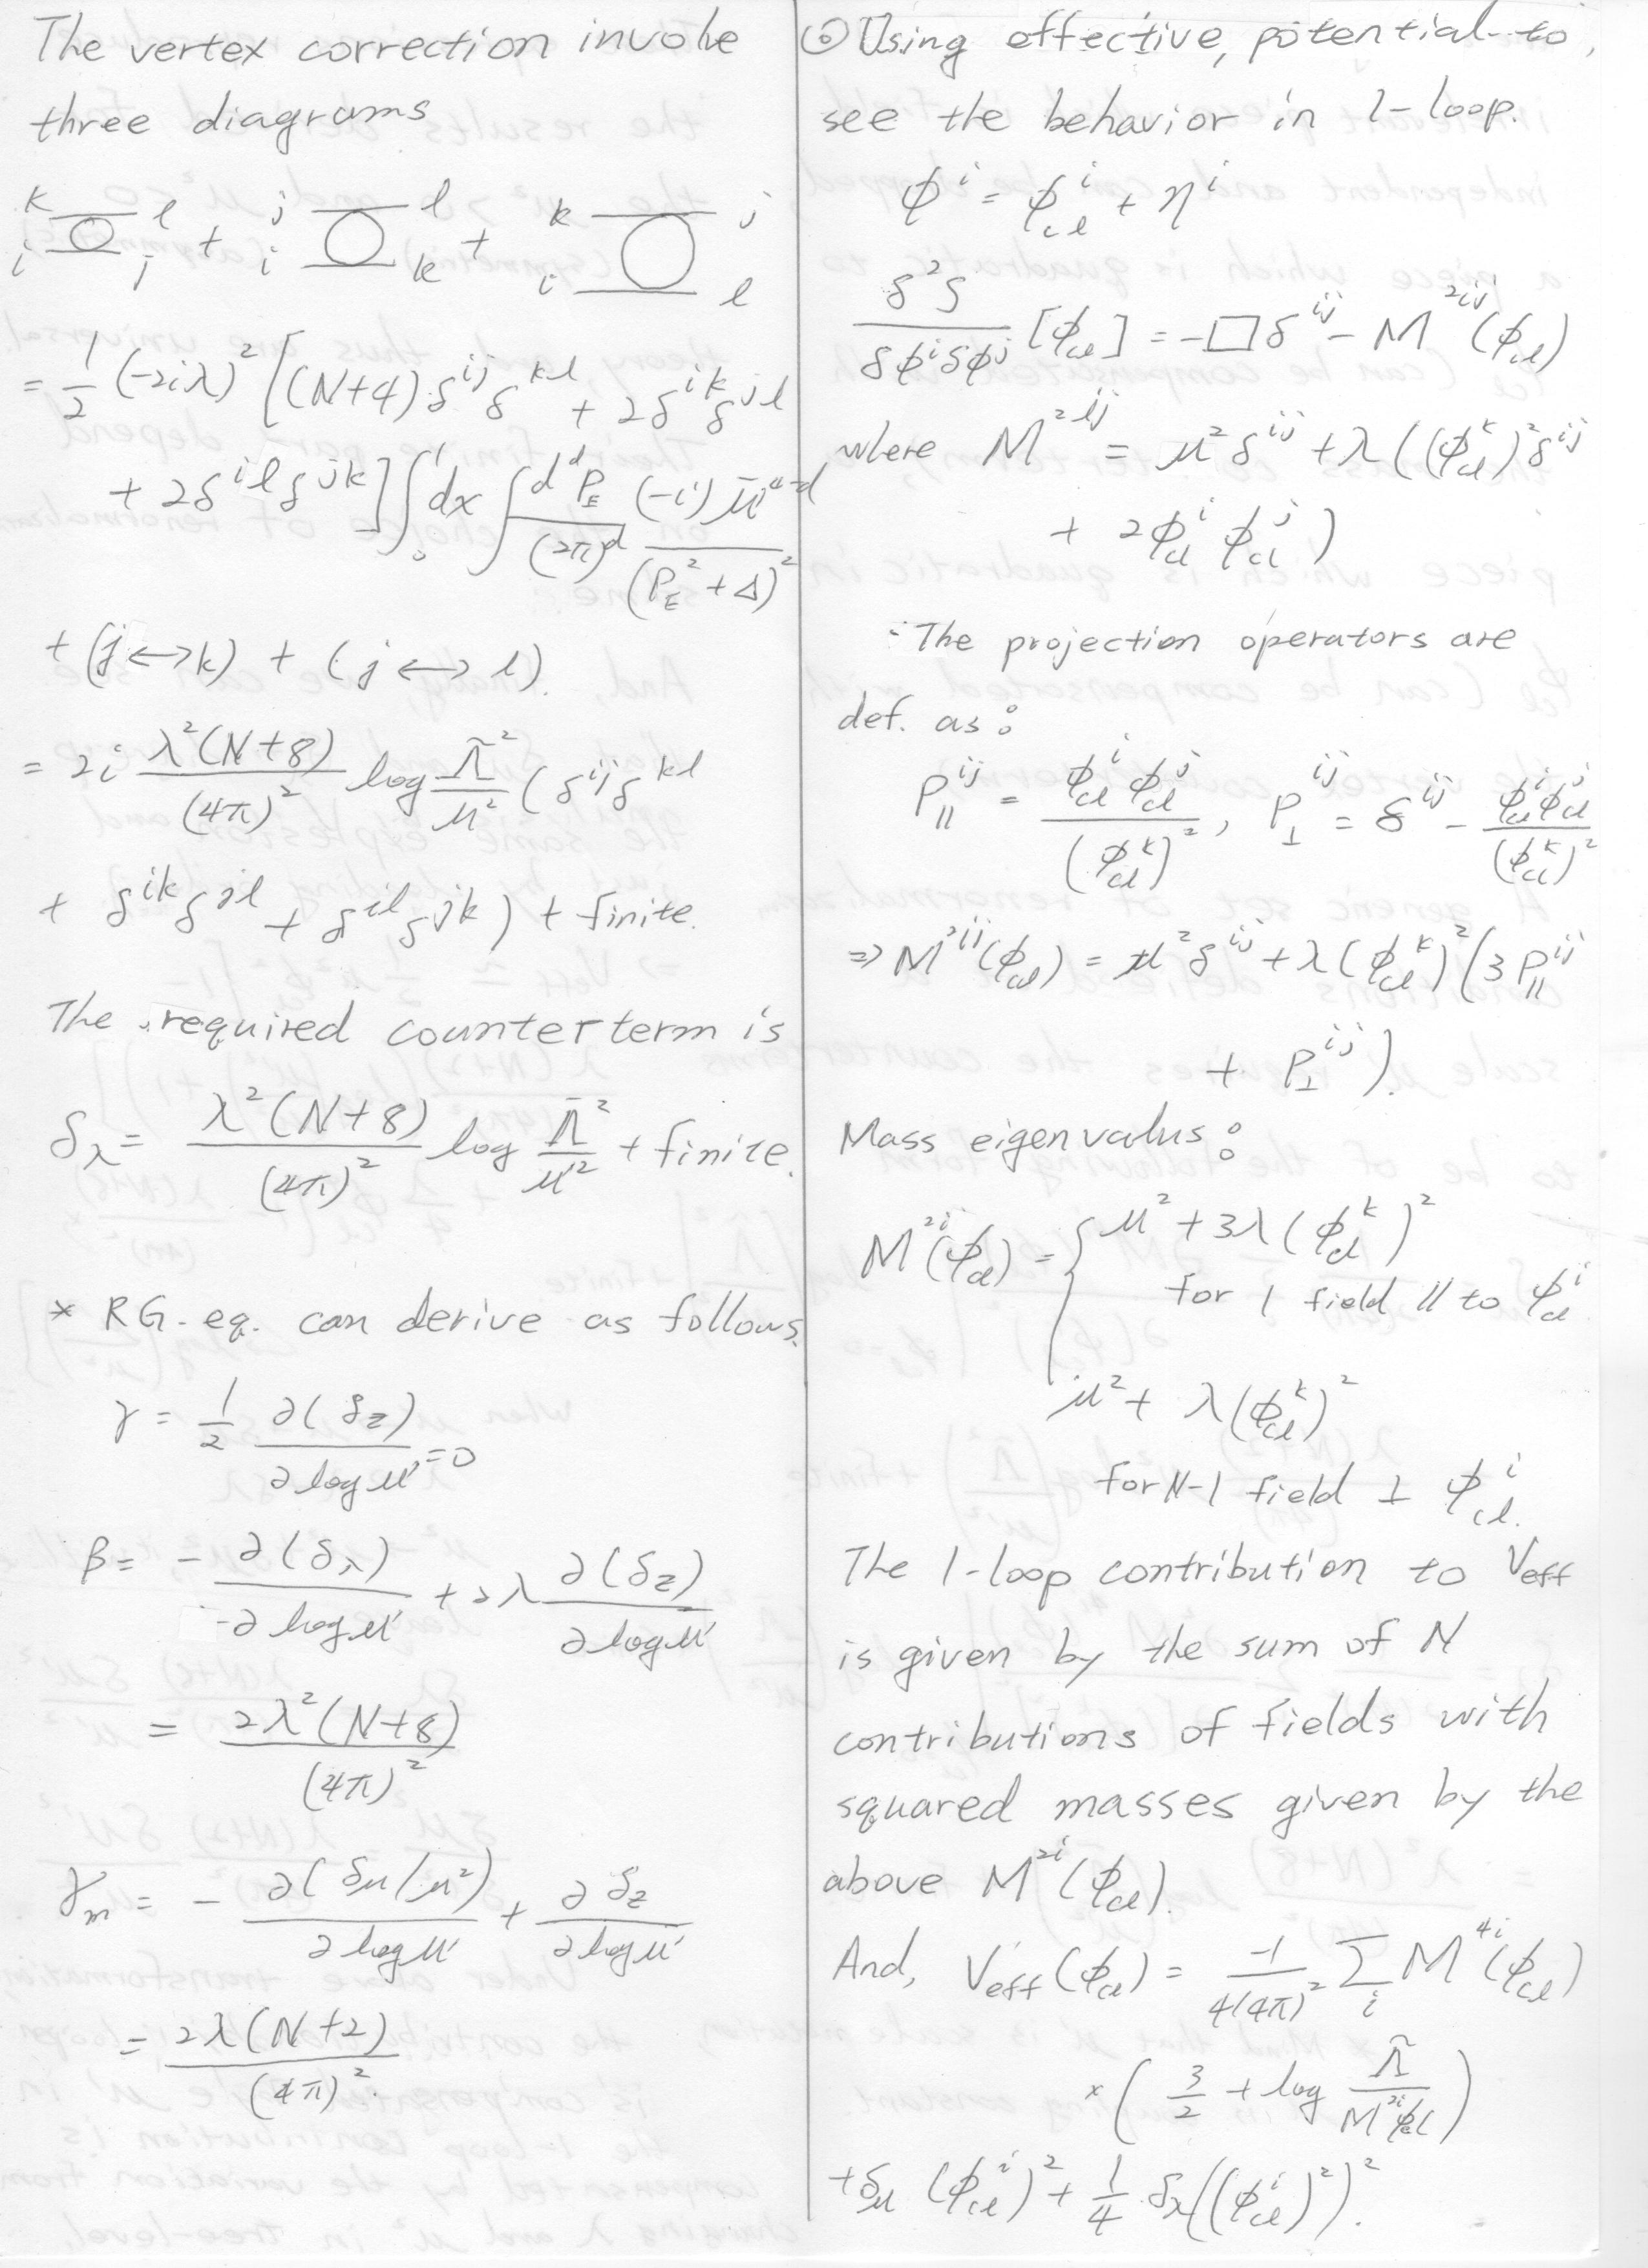 The vertex correction involve
three diagrams
k l j l k j
i j + i k + i l
= 1/2 (-2iλ)² [(N+4) δ^{ij} δ^{kl} + 2δ^{ik} δ^{jl}
+ 2δ^{il} δ^{jk}] ∫₀¹ dx ∫ d^d P_E/(2π)^d (-i) μ̄^{4-d}/(P_E² + Δ)²
+ (j ↔ k) + (j ↔ l).
= 2i λ²(N+8)/(4π)² log Λ̃²/μ² (δ^{ij} δ^{kl}
+ δ^{ik} δ^{jl} + δ^{il} δ^{jk}) + finite.
The required counterterm is
δ_λ = λ²(N+8)/(4π)² log Λ̄²/μ'² + finite.
* RG. eq. can derive as follows.
γ = 1/2 ∂(δ_z)/∂ log μ' = 0
β = - ∂(δ_λ)/-∂ log μ' + 2λ ∂(δ_z)/∂ log μ'
= 2λ²(N+8)/(4π)²
γ_m = - ∂(δμ/μ²)/∂ log μ' + ∂ δ_z/∂ log μ'
= 2λ(N+2)/(4π)².
⊙ Using effective, potential to,
see the behavior in 1-loop.
ϕ^i = ϕ_cl^i + η^i
δ²S/δϕ^i δϕ^j [ϕ_cl] = -□δ^{ij} - M^{2ij} (ϕ_cl)
where M^{2ij} = μ² δ^{ij} + λ((ϕ_cl^k)² δ^{ij}
+ 2ϕ_cl^i ϕ_cl^j)
The projection operators are
def. as :
P_∥^{ij} = ϕ_cl^i ϕ_cl^j/(ϕ_cl^k)², P_⊥^{ij} = δ^{ij} - ϕ_cl^i ϕ_cl^j/(ϕ_cl^k)²
⇒ M^{2ij}(ϕ_cl) = μ² δ^{ij} + λ(ϕ_cl^k)² (3 P_∥^{ij}
+ P_⊥^{ij}).
Mass eigenvalus :
M^{2i}(ϕ_cl) = { μ² + 3λ (ϕ_cl^k)²
for 1 field ∥ to ϕ_cl^i
μ² + λ(ϕ_cl^k)²
for N-1 field ⊥ ϕ_cl^i.
The 1-loop contribution to V_eff
is given by the sum of N
contributions of fields with
squared masses given by the
above M^{2i} (ϕ_cl).
And, V_eff (ϕ_cl) = -1/4(4π)² Σ_i M^{4i} (ϕ_cl)
× (3/2 + log Λ̃/M^{2i}ϕ_cl)
+ δ_μ (ϕ_cl^i)² + 1/4 δ_λ ((ϕ_cl^i)²)².